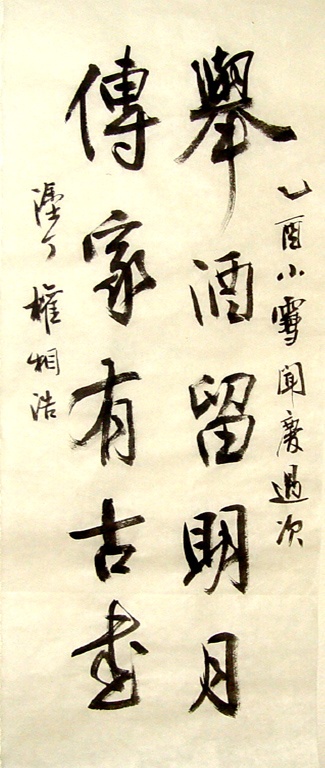 乙酉小雪聞慶過次
舉酒留明月
傳家有古書
塗丁權相浩